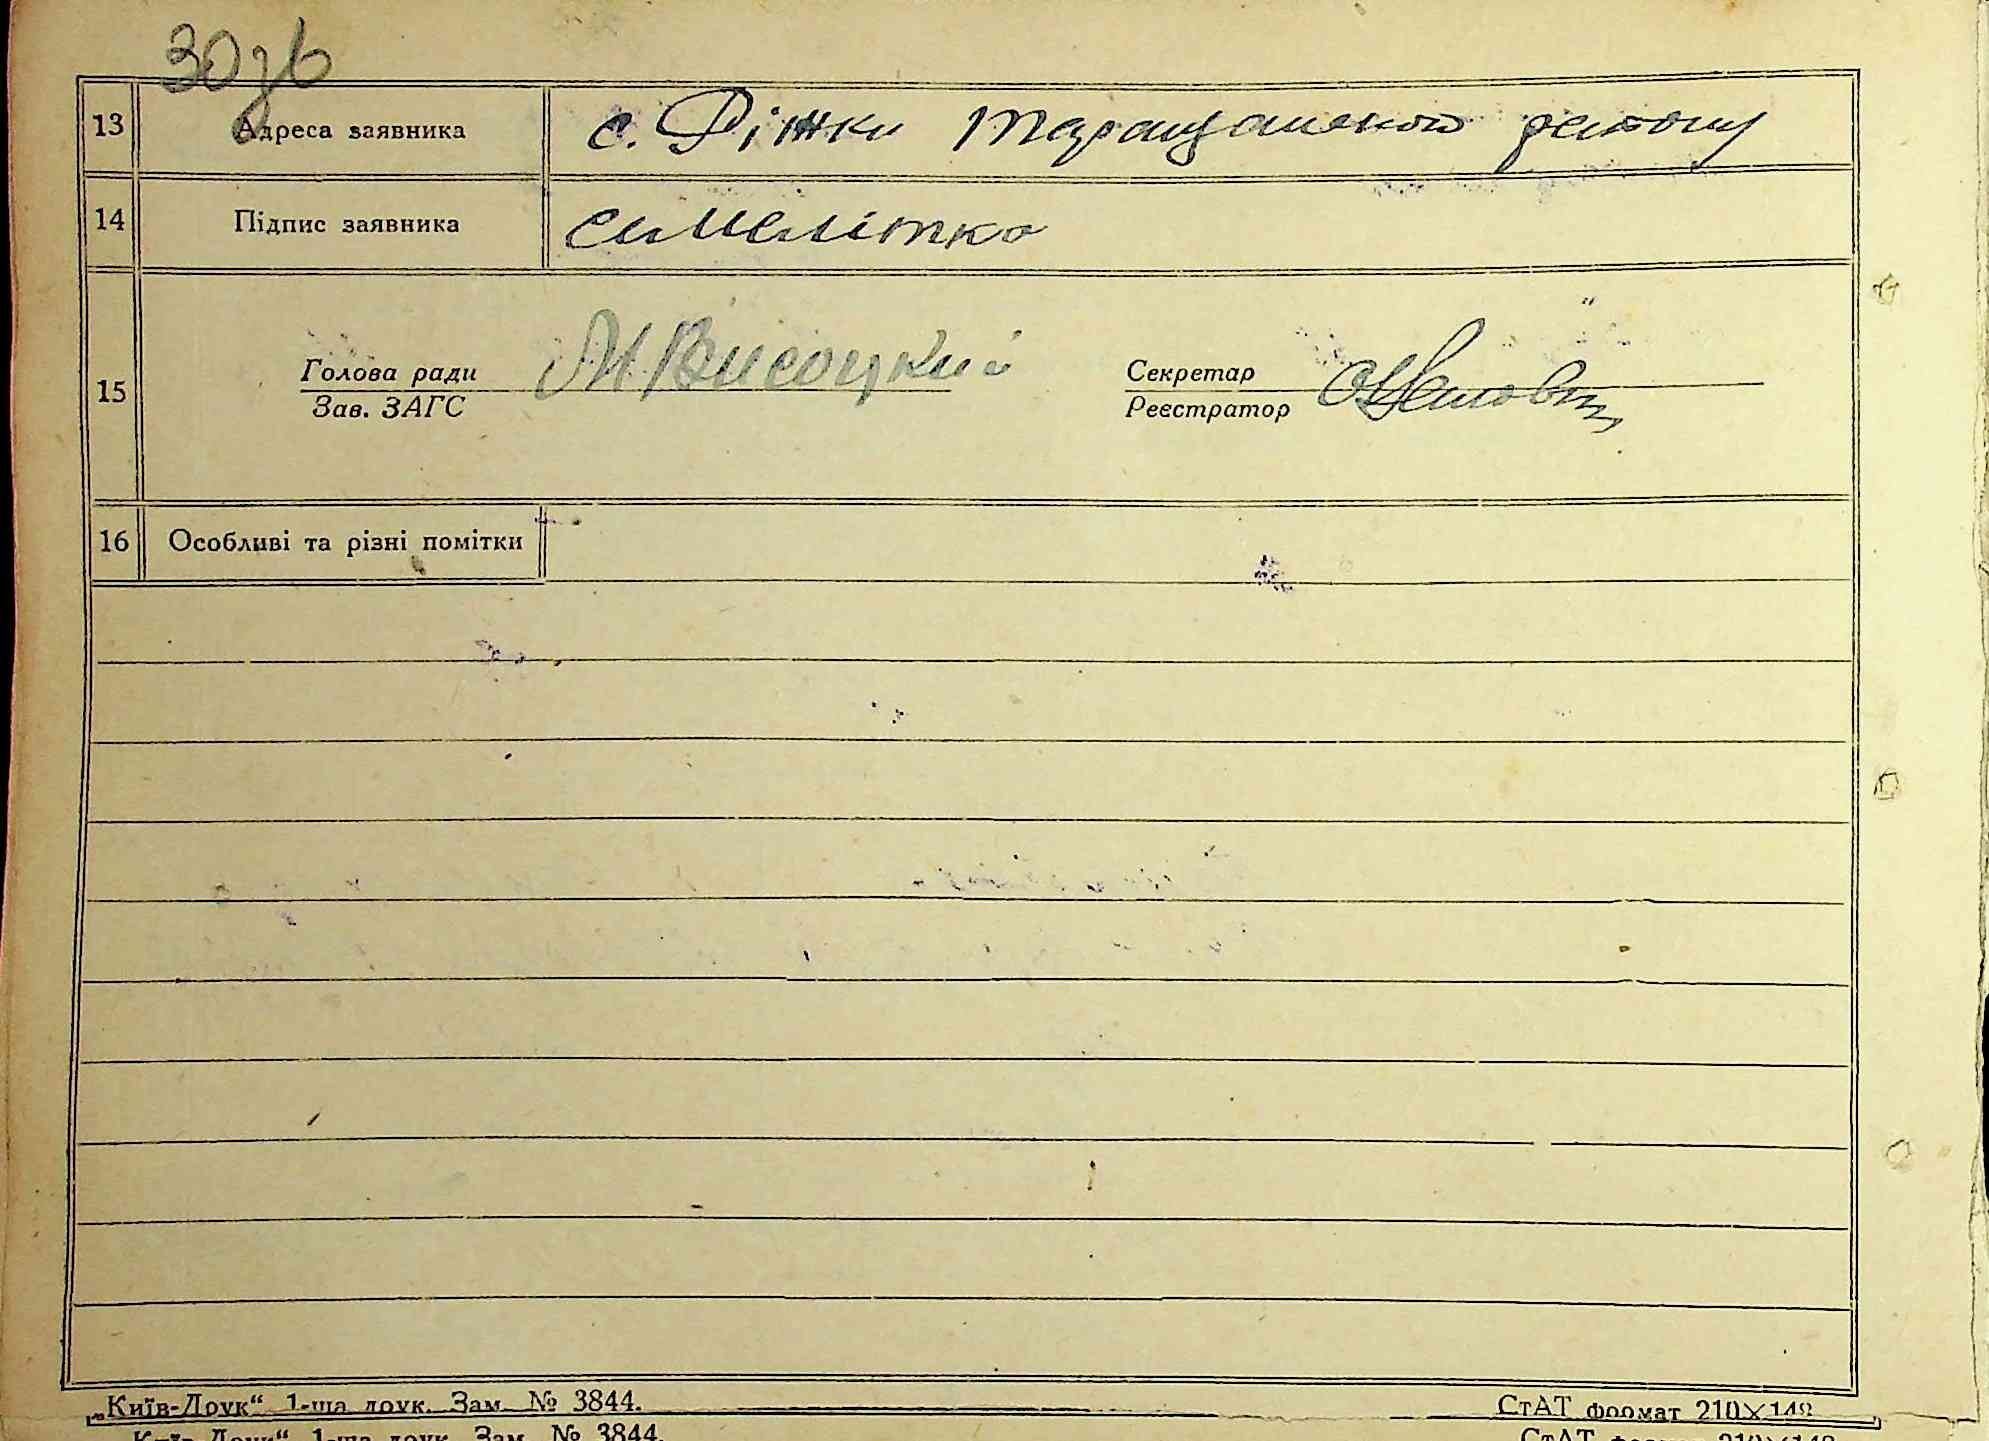 30зв
13 Адреса заявника с. Ріжки Таращанского району
14 Підпис заявника
15 Голова ради М Висоцкий Секретар
Зав. ЗАГС Реєстратор
16 Особливі та різні помітки
„Київ-Друк“ 1-ша друк. Зам. № 3844. СтАТ формат 210×148
„Київ-Друк“ 1-ша друк. Зам. № 3844. СтАТ формат 210×148